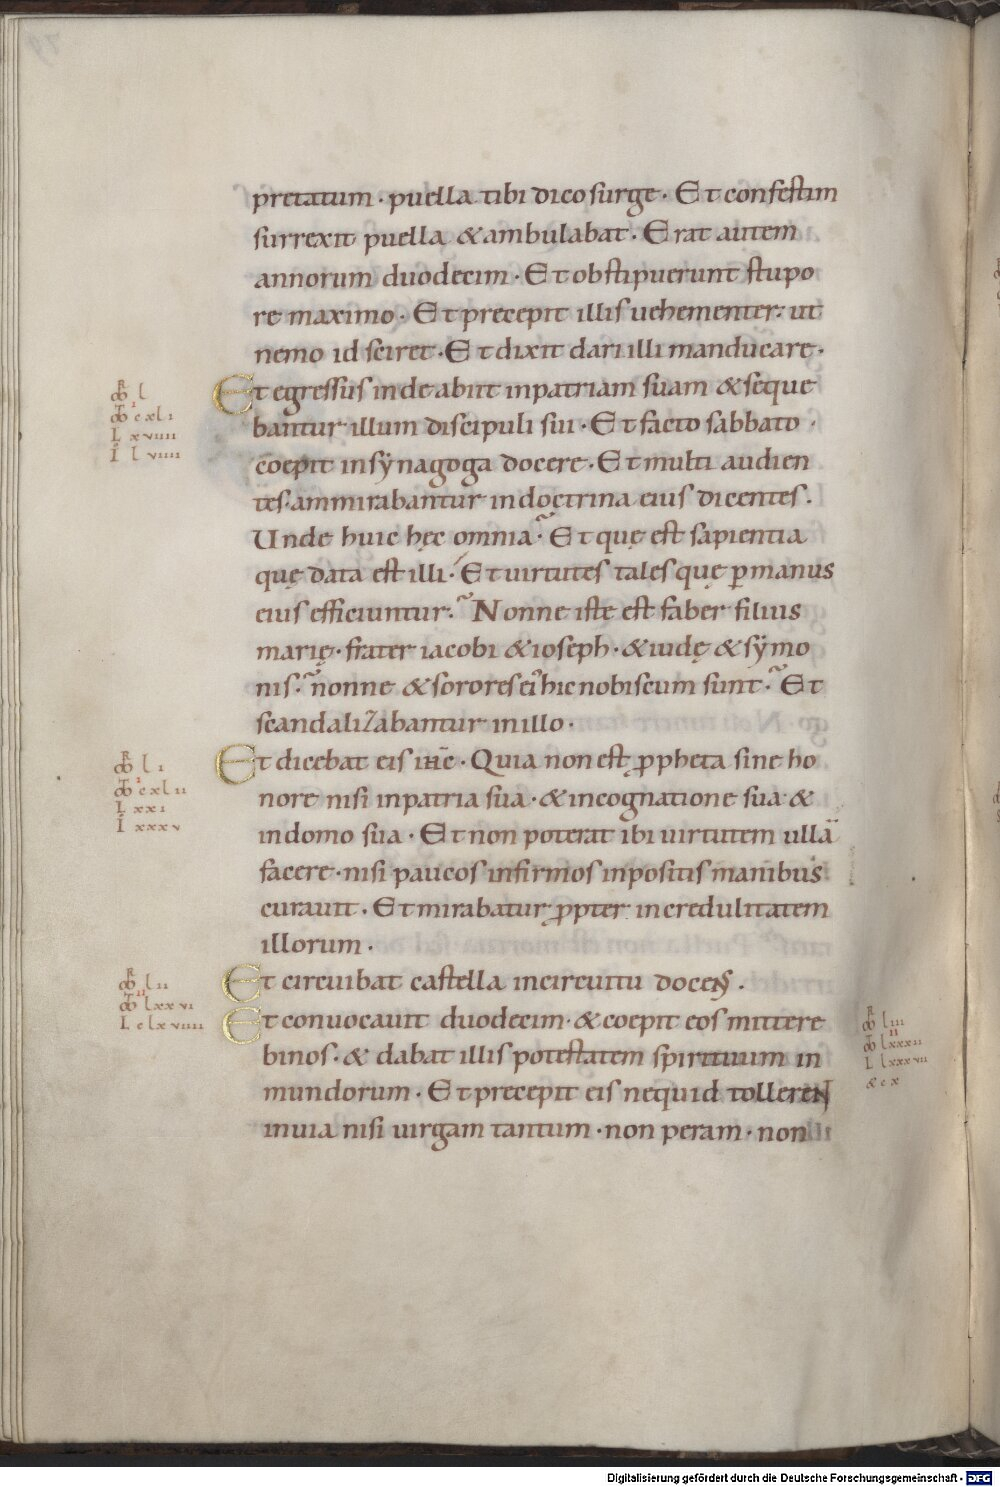 pretatum · puella tibi dico surge · Et confestim
surrexit puella & ambulabat · Erat autem
annorum duodecim · Et obstipuerunt stupo
re maximo · Et precepit illis uehementer: ut
nemo id sciret · Et dixit dari illi manducare ·
Et egressus inde abiit inpatriam suam & seque
bantur illum discipuli sui · Et facto sabbato ·
coepit in sÿnagoga docere · Et multi audien
tes · ammirabantur in doctrina eius dicentes ·
Unde huic hęc omnia? Et quę est sapientia
quę data est illi · Et uirtutes tales quę p manus
eius efficiuntur? Nonne iste est faber filius
marię · frater iacobi & ioseph · & iudę & sÿmo
nis? nonne & sorores ei' hic nobiscum sunt? Et
scandalizabantur in illo ·
Et dicebat eis ihc · Quia non est ppheta sine ho
nore nisi inpatria sua · & incognatione sua &
indomo sua · Et non poterat ibi uirtutem ullā
facere · nisi paucos infirmos inpositis manibus
curauit · Et mirabatur ppter incredulitatem
illorum ·
Et circuibat castella incircuitu docens ·
Et conuocauit duodecim · & coepit eos mittere
binos · & dabat illis potestatem spirituum in
mundorum · Et precepit eis nequid tollerent
inuia nisi uirgam tantum · non peram · non
R l
cxl ı
L xvıııı
I l vıııı
R l ı
cxl ıı
L xxı
I xxxv
R l ıı
lxxvı
L clxvıııı
R l ııı
lxxxıı
L lxxxvıı
& cx
Digitalisierung gefördert durch die Deutsche Forschungsgemeinschaft - DFG